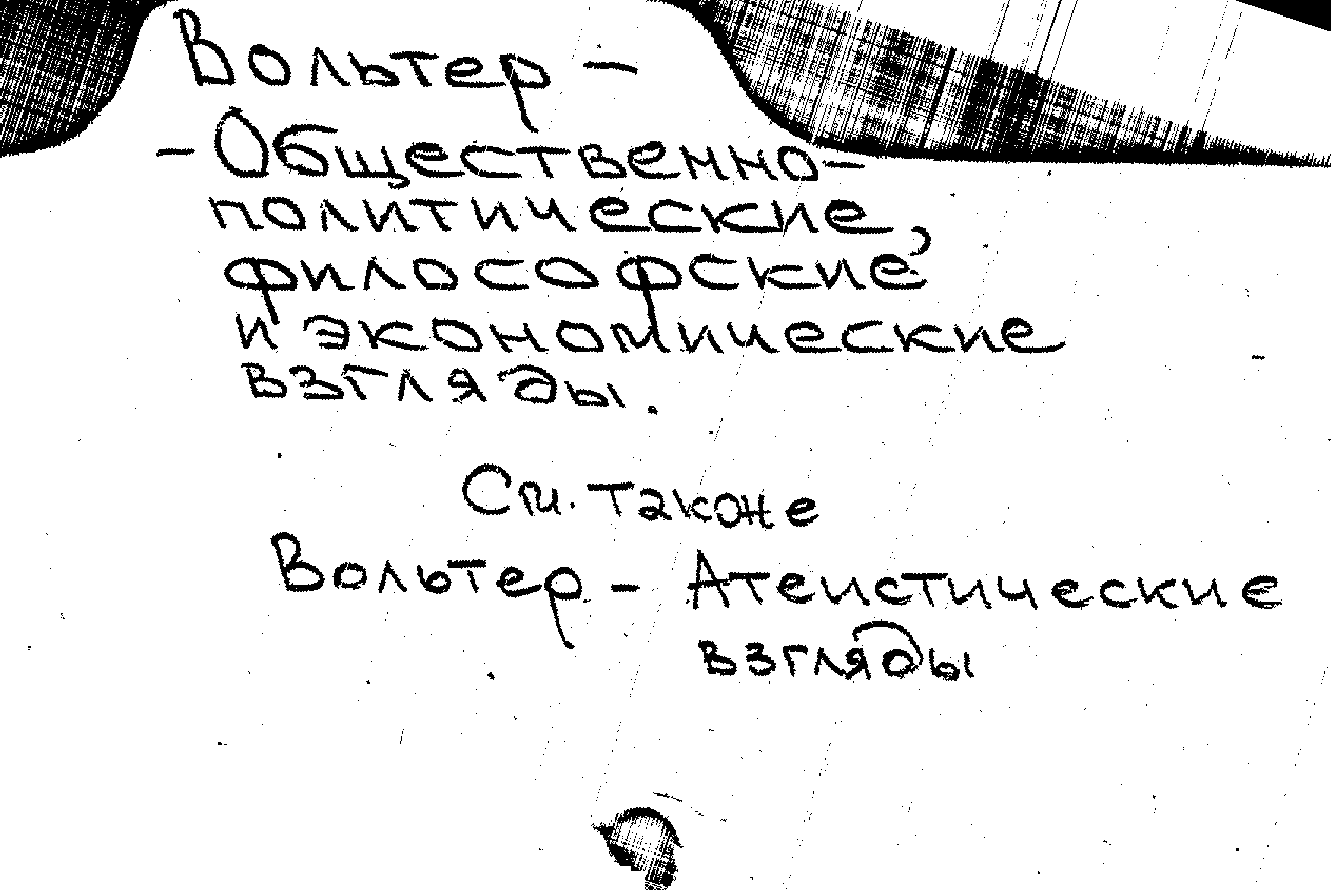 Вольтер –
– Общественно-
политические,
философские
и экономические
взгляды.
См. также
Вольтер – Атеистические
взгляды